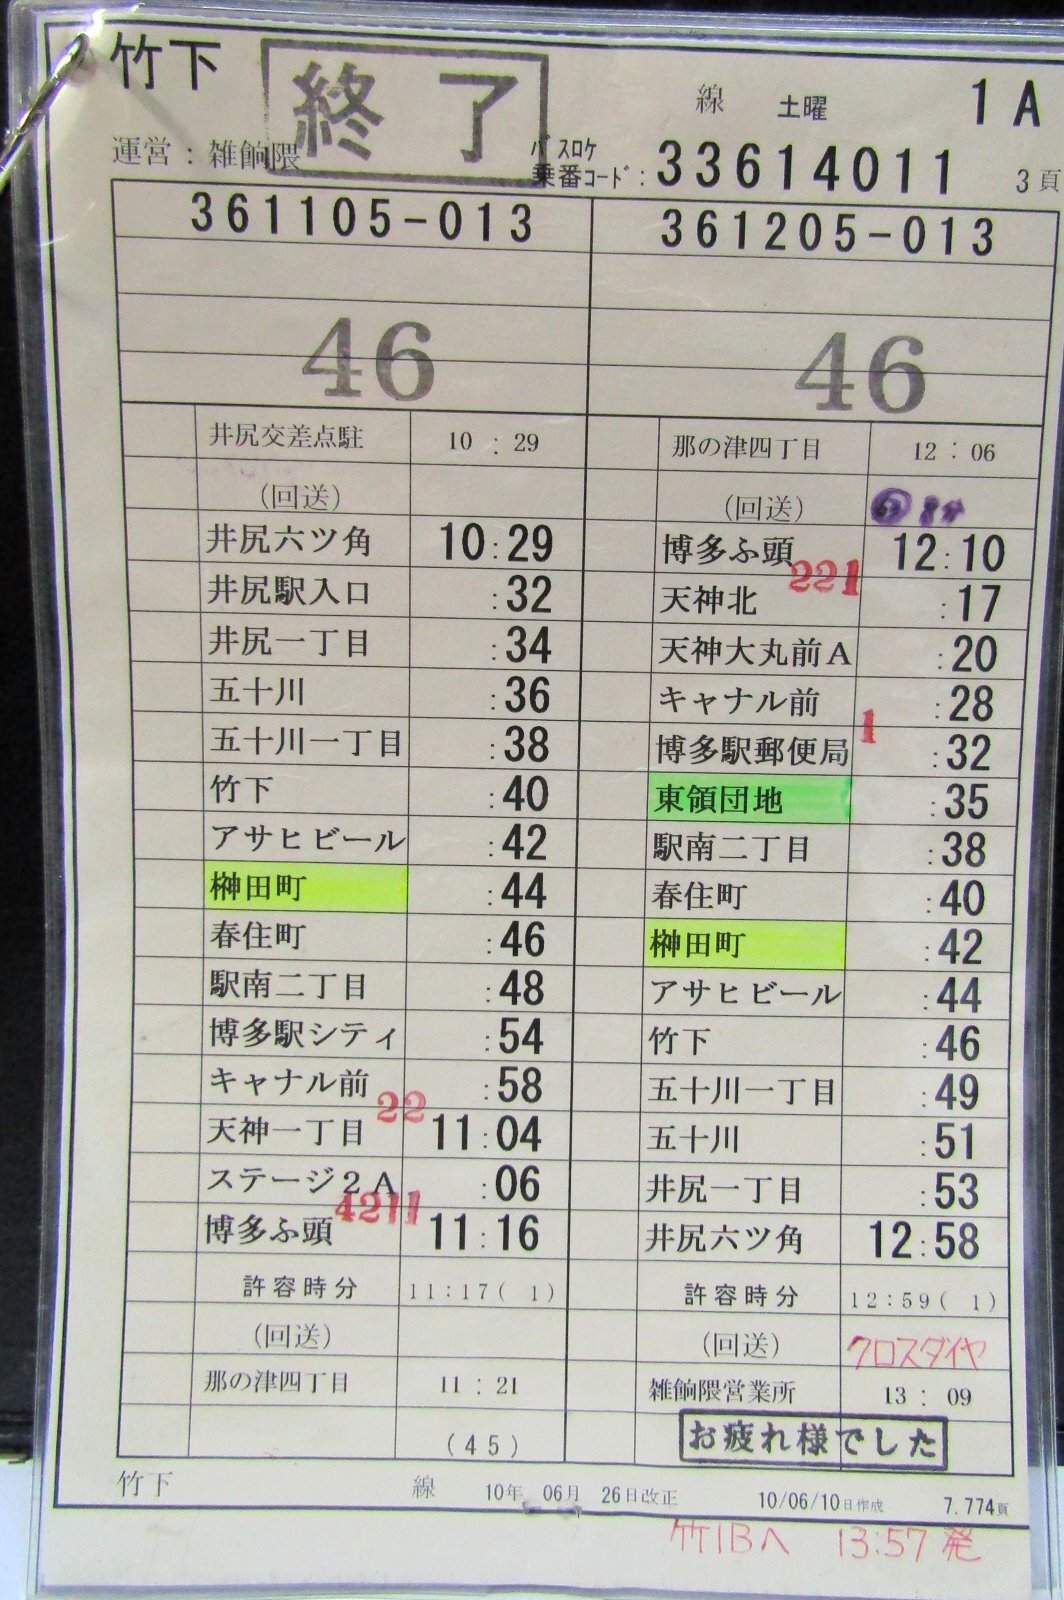 竹下 終了 線 土曜 1 A
運営：雑餉隈 バスロケ 乗番コード：33614011 3頁
361105-013
46
井尻交差点駐 10：29
(回送)
井尻六ツ角 10：29
井尻駅入口 ：32
井尻一丁目 ：34
五十川 ：36
五十川一丁目 ：38
竹下 ：40
アサヒビール ：42
榊田町 ：44
春住町 ：46
駅南二丁目 ：48
博多駅シティ ：54
キャナル前 ：58
22
天神一丁目 11：04
ステージ２Ａ ：06
4211
博多ふ頭 11：16
許容時分 11：17( 1)
(回送)
那の津四丁目 11：21
(45)
361205-013
46
那の津四丁目 12：06
(回送)
博多ふ頭 12：10
221
天神北 ：17
天神大丸前Ａ ：20
キャナル前 ：28
1
博多駅郵便局 ：32
東領団地 ：35
駅南二丁目 ：38
春住町 ：40
榊田町 ：42
アサヒビール ：44
竹下 ：46
五十川一丁目 ：49
五十川 ：51
井尻一丁目 ：53
井尻六ツ角 12：58
許容時分 12：59( 1)
(回送) クロスダイヤ
雑餉隈営業所 13：09
お疲れ様でした
竹下 線 10年 06月 26日改正 10/06/10日作成 7.774頁
竹1Bへ 13:57発